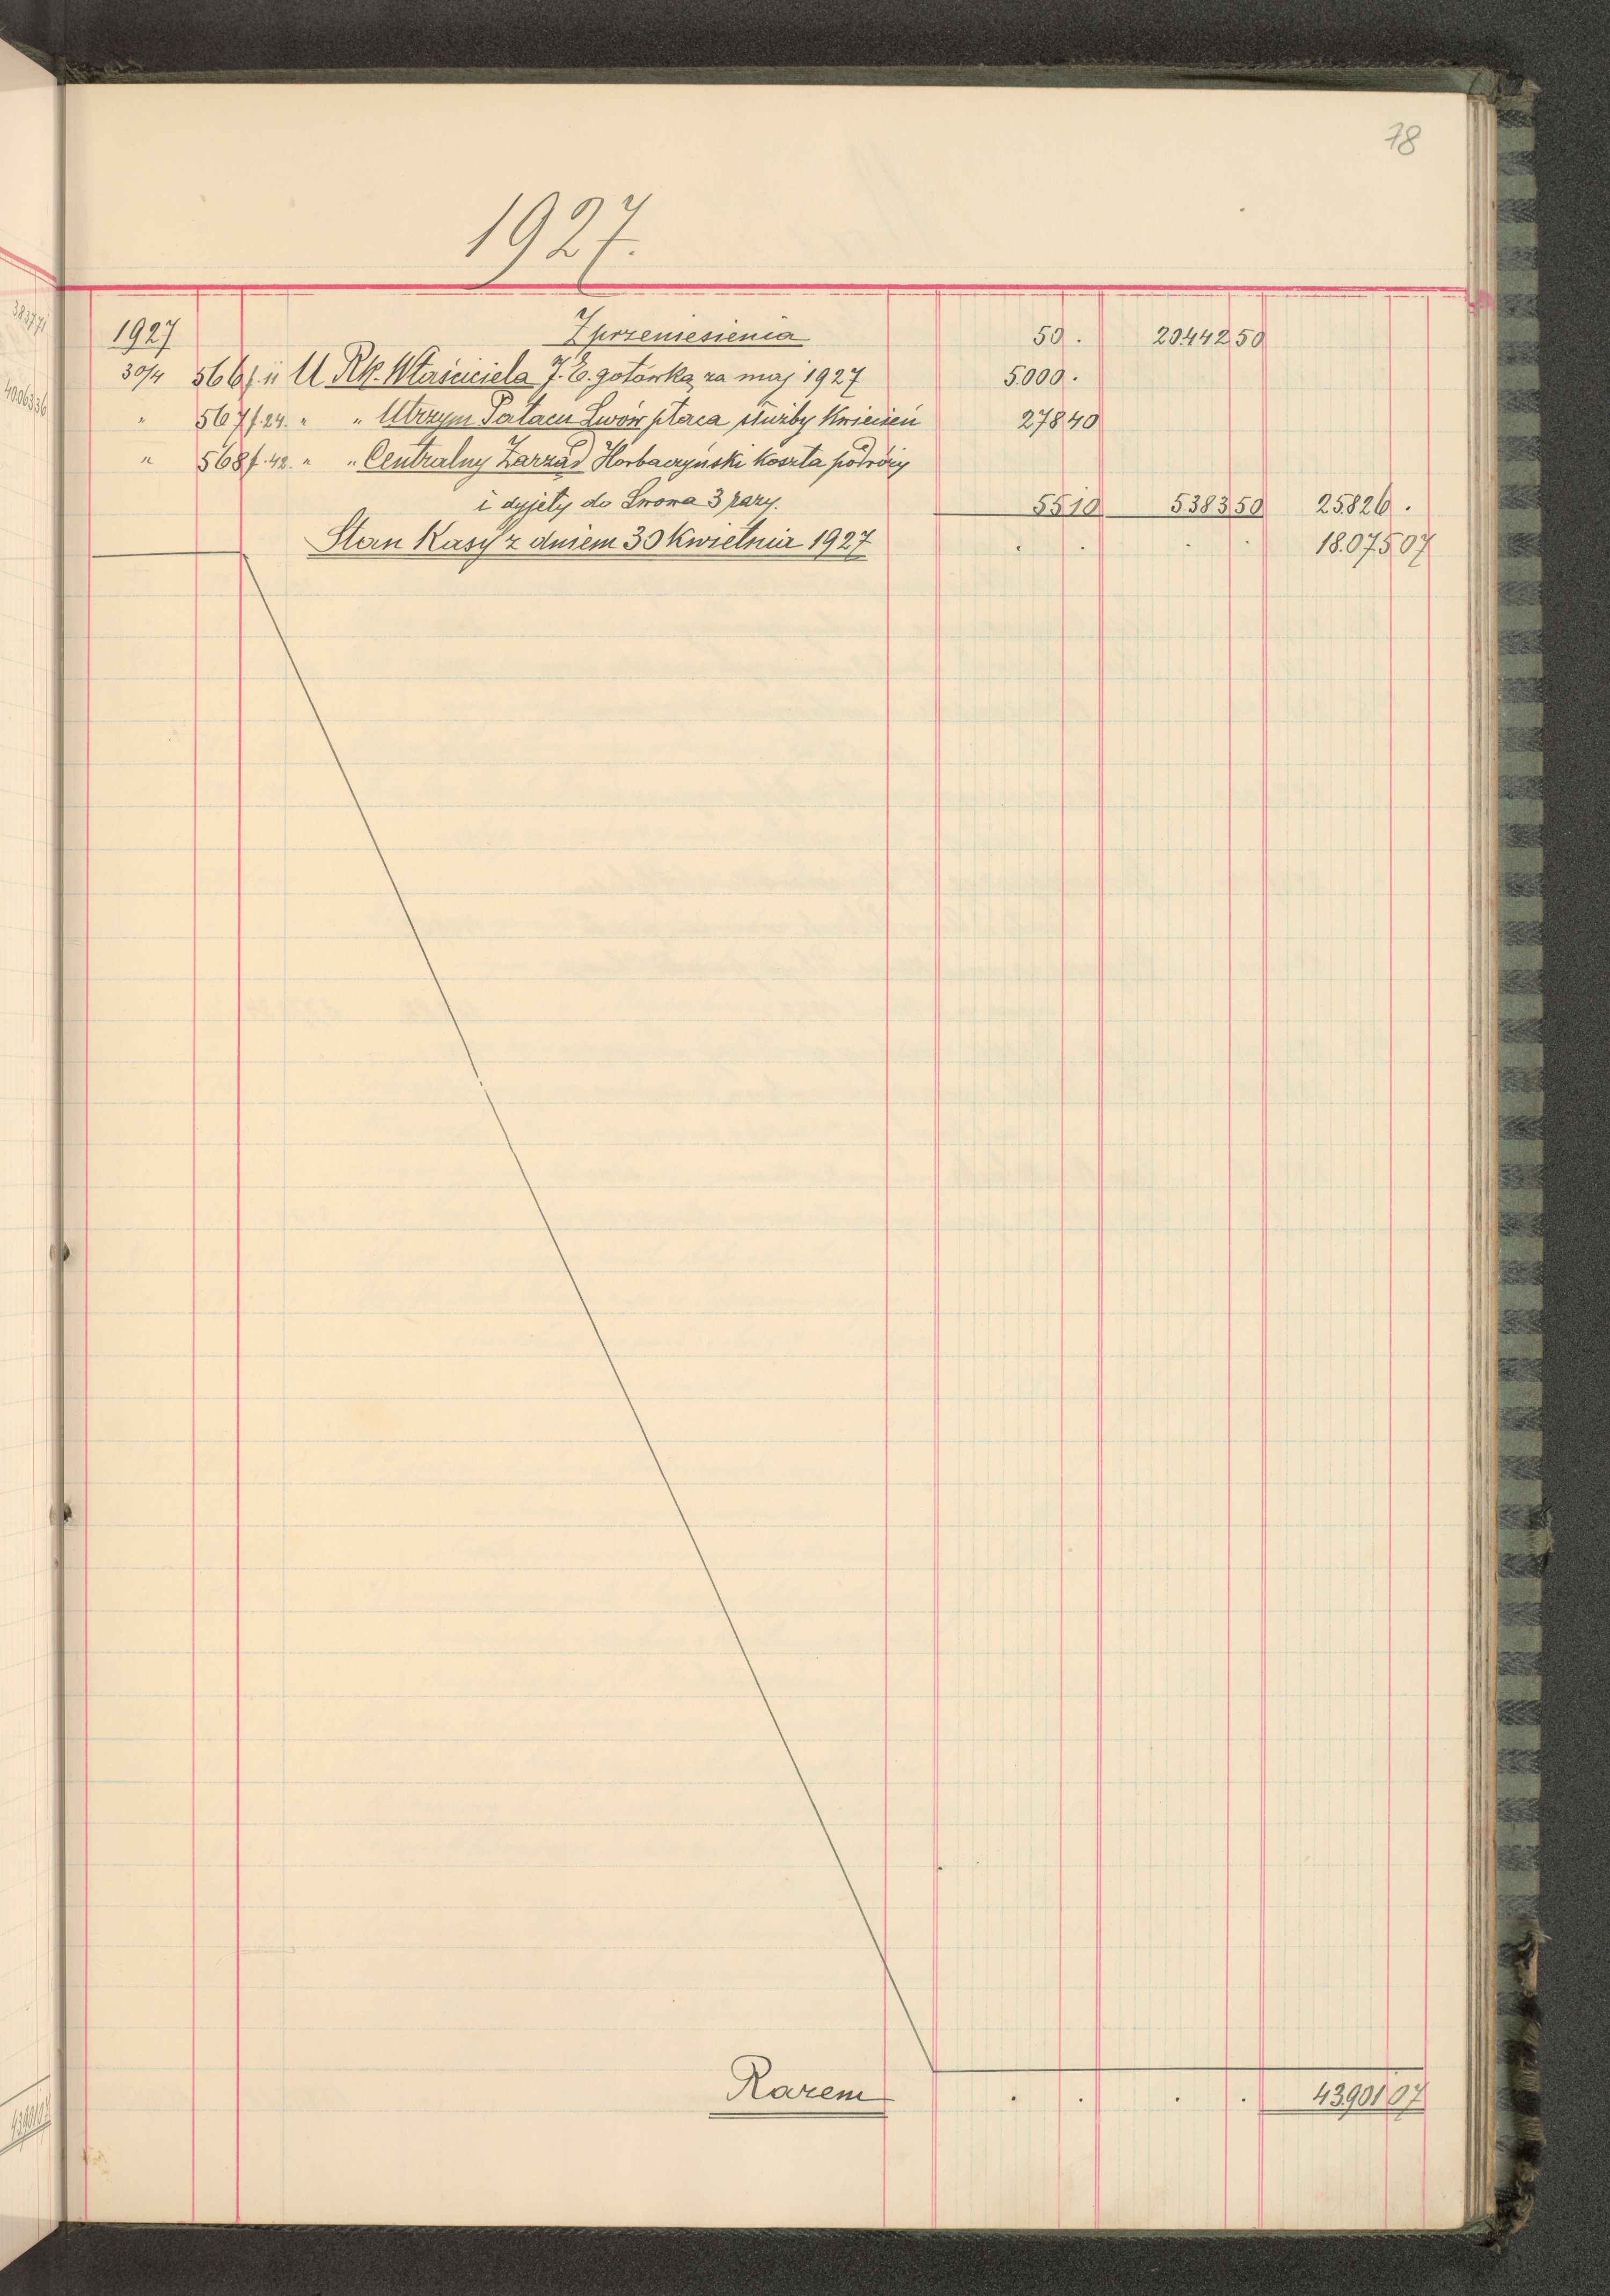 78
1927.
1927 Z przeniesienia 50 . 20.442 50
30/4 566 f. 11 U Rk. Właściciela J. E. gotówką za maj 1927 5.000 .
" 567 f. 24. " " Utrzym Pałacu Lwów płaca służby Kwiecień 278 40
" 568 f. 42. " " Centralny Zarząd Horbaczyński Koszta podróży
i dyjety do Lwowa 3 razy. 55 10 5.383 50 25.826 .
Stan Kasy z dniem 30 Kwietnia 1927 . . . . 18.075 07
Razem . . . . 43.901 07